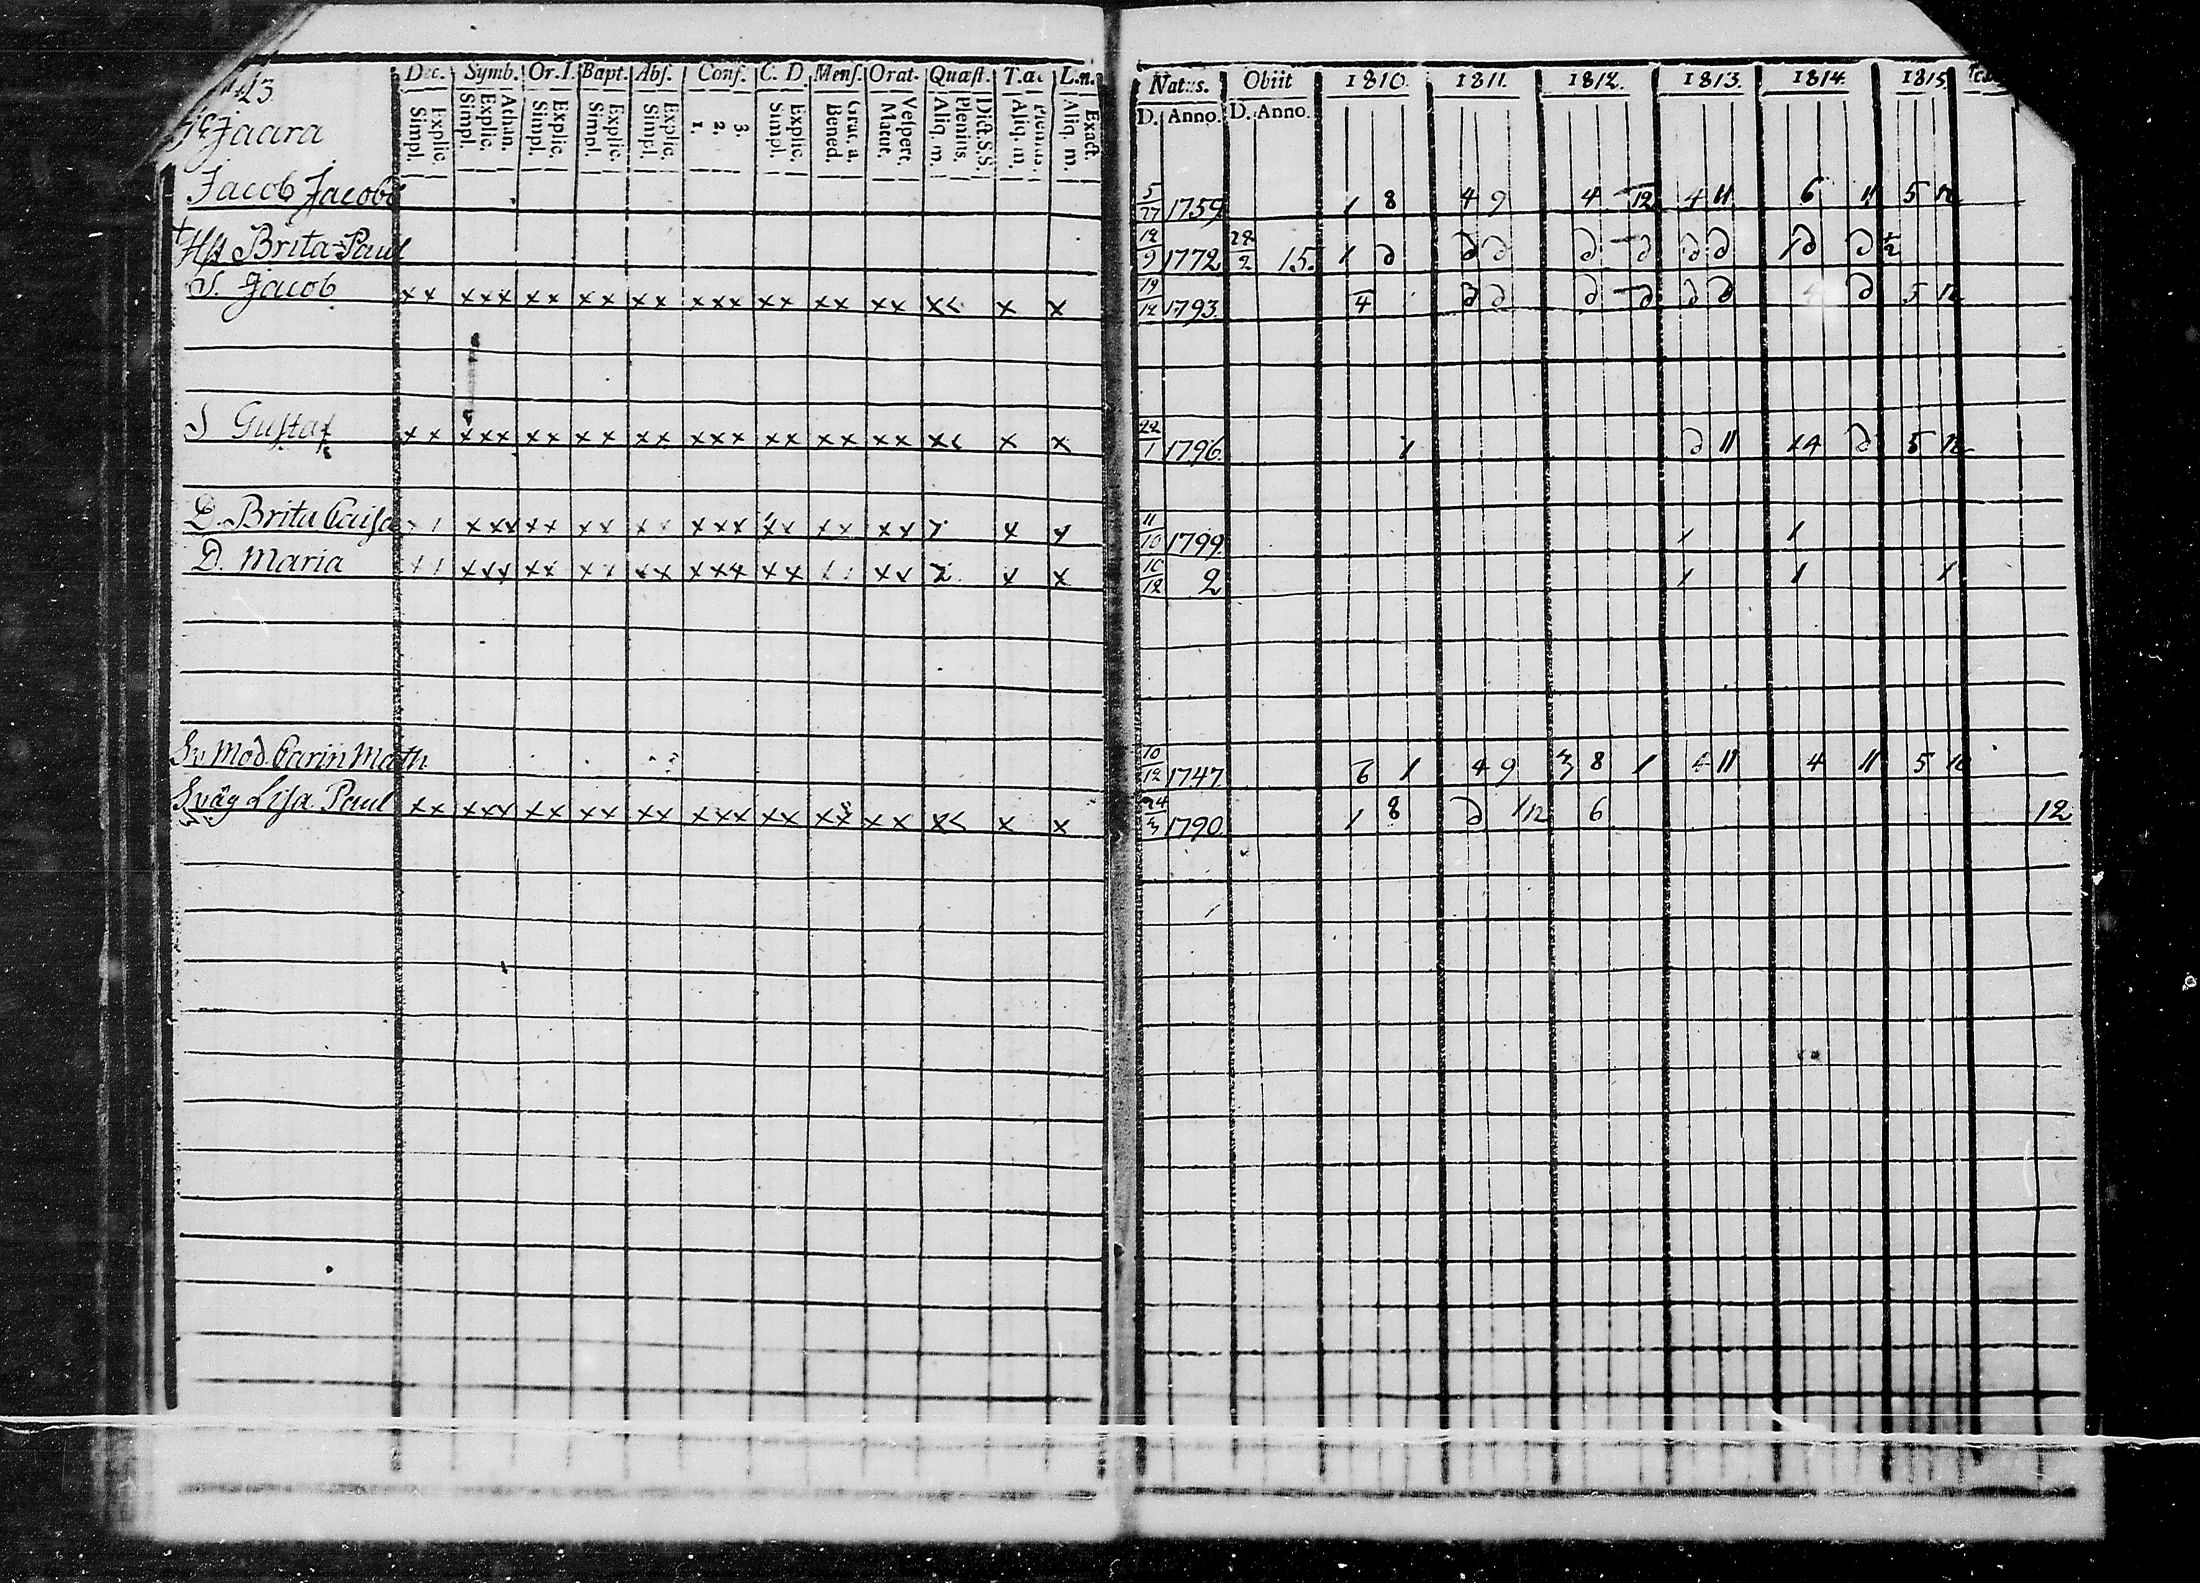 Dec. Symb. Or. I. Bapt. Abs. Conf. C. D. Mens. Orat. Quæst. T. a. L. n.
Simpl. Explic. Simpl. Explic. Athan. Simpl. Explic. Simpl. Explic. Simpl. Explic. 1. 2. 3. Simpl. Explic. Bened. Grat. a. Matut. Vespert. Aliq. m. Plenius. Dict. S.S. Aliq. m. Plenius. Aliq. m. Exact.
Natus. Obiit 1810. 1811. 1812. 1813. 1814. 1815
D. Anno. D. Anno.
Jaara
Jacob Jacobs 5/27 1759 1 8 4 9 4 12 4 11 6 11 5 12
† Hst Brita Paul 12/9 1772 28/2 15. 1 d d d d d d d 1 d d
S. Jacob x x x x x x x x x x x x x x x x x x x x x x x 19/12 1793 4 d d d d d d d 5 12
S Gustaf x x x x x x x x x x x x x x x x x x x x x x 22/1 1796 1 d 11 14 d 5 12
D. Brita Caisa x x x x x x x x x x x x x x x x x x x x 11/10 1799 1 1
D. Maria x x x x x x x x x x x x x x x x x x 10/12 2 1 1 1
Sv. Mod. Carin Math 10/12 1747 6 1 4 9 3 8 1 4 11 4 11 5 10
Sväg Lisa Paul x x x x x x x x x x x x x x x x x x x x x x 24/3 1790 1 8 d 1/12 6 12